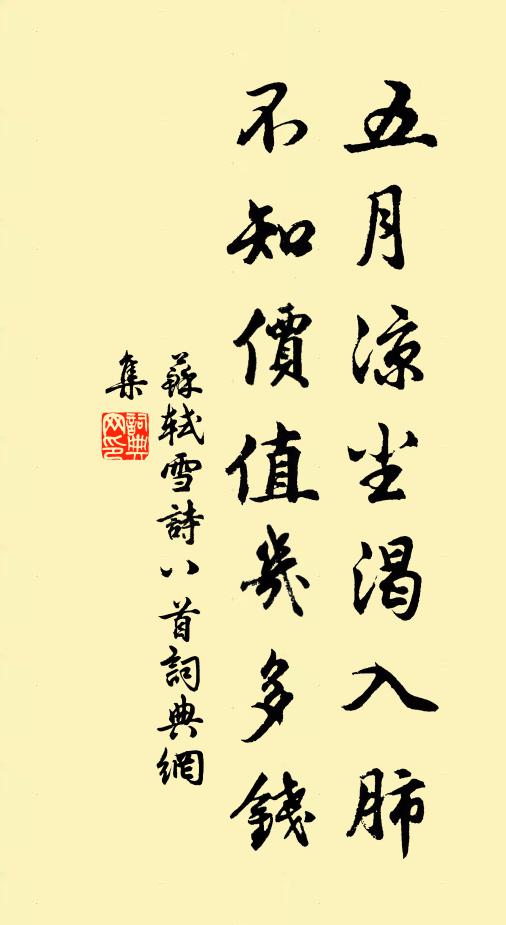 五月涼坐渴入肺
不知價值幾多錢
蘇軾雪詩八首詞典網
集
詞典
网印